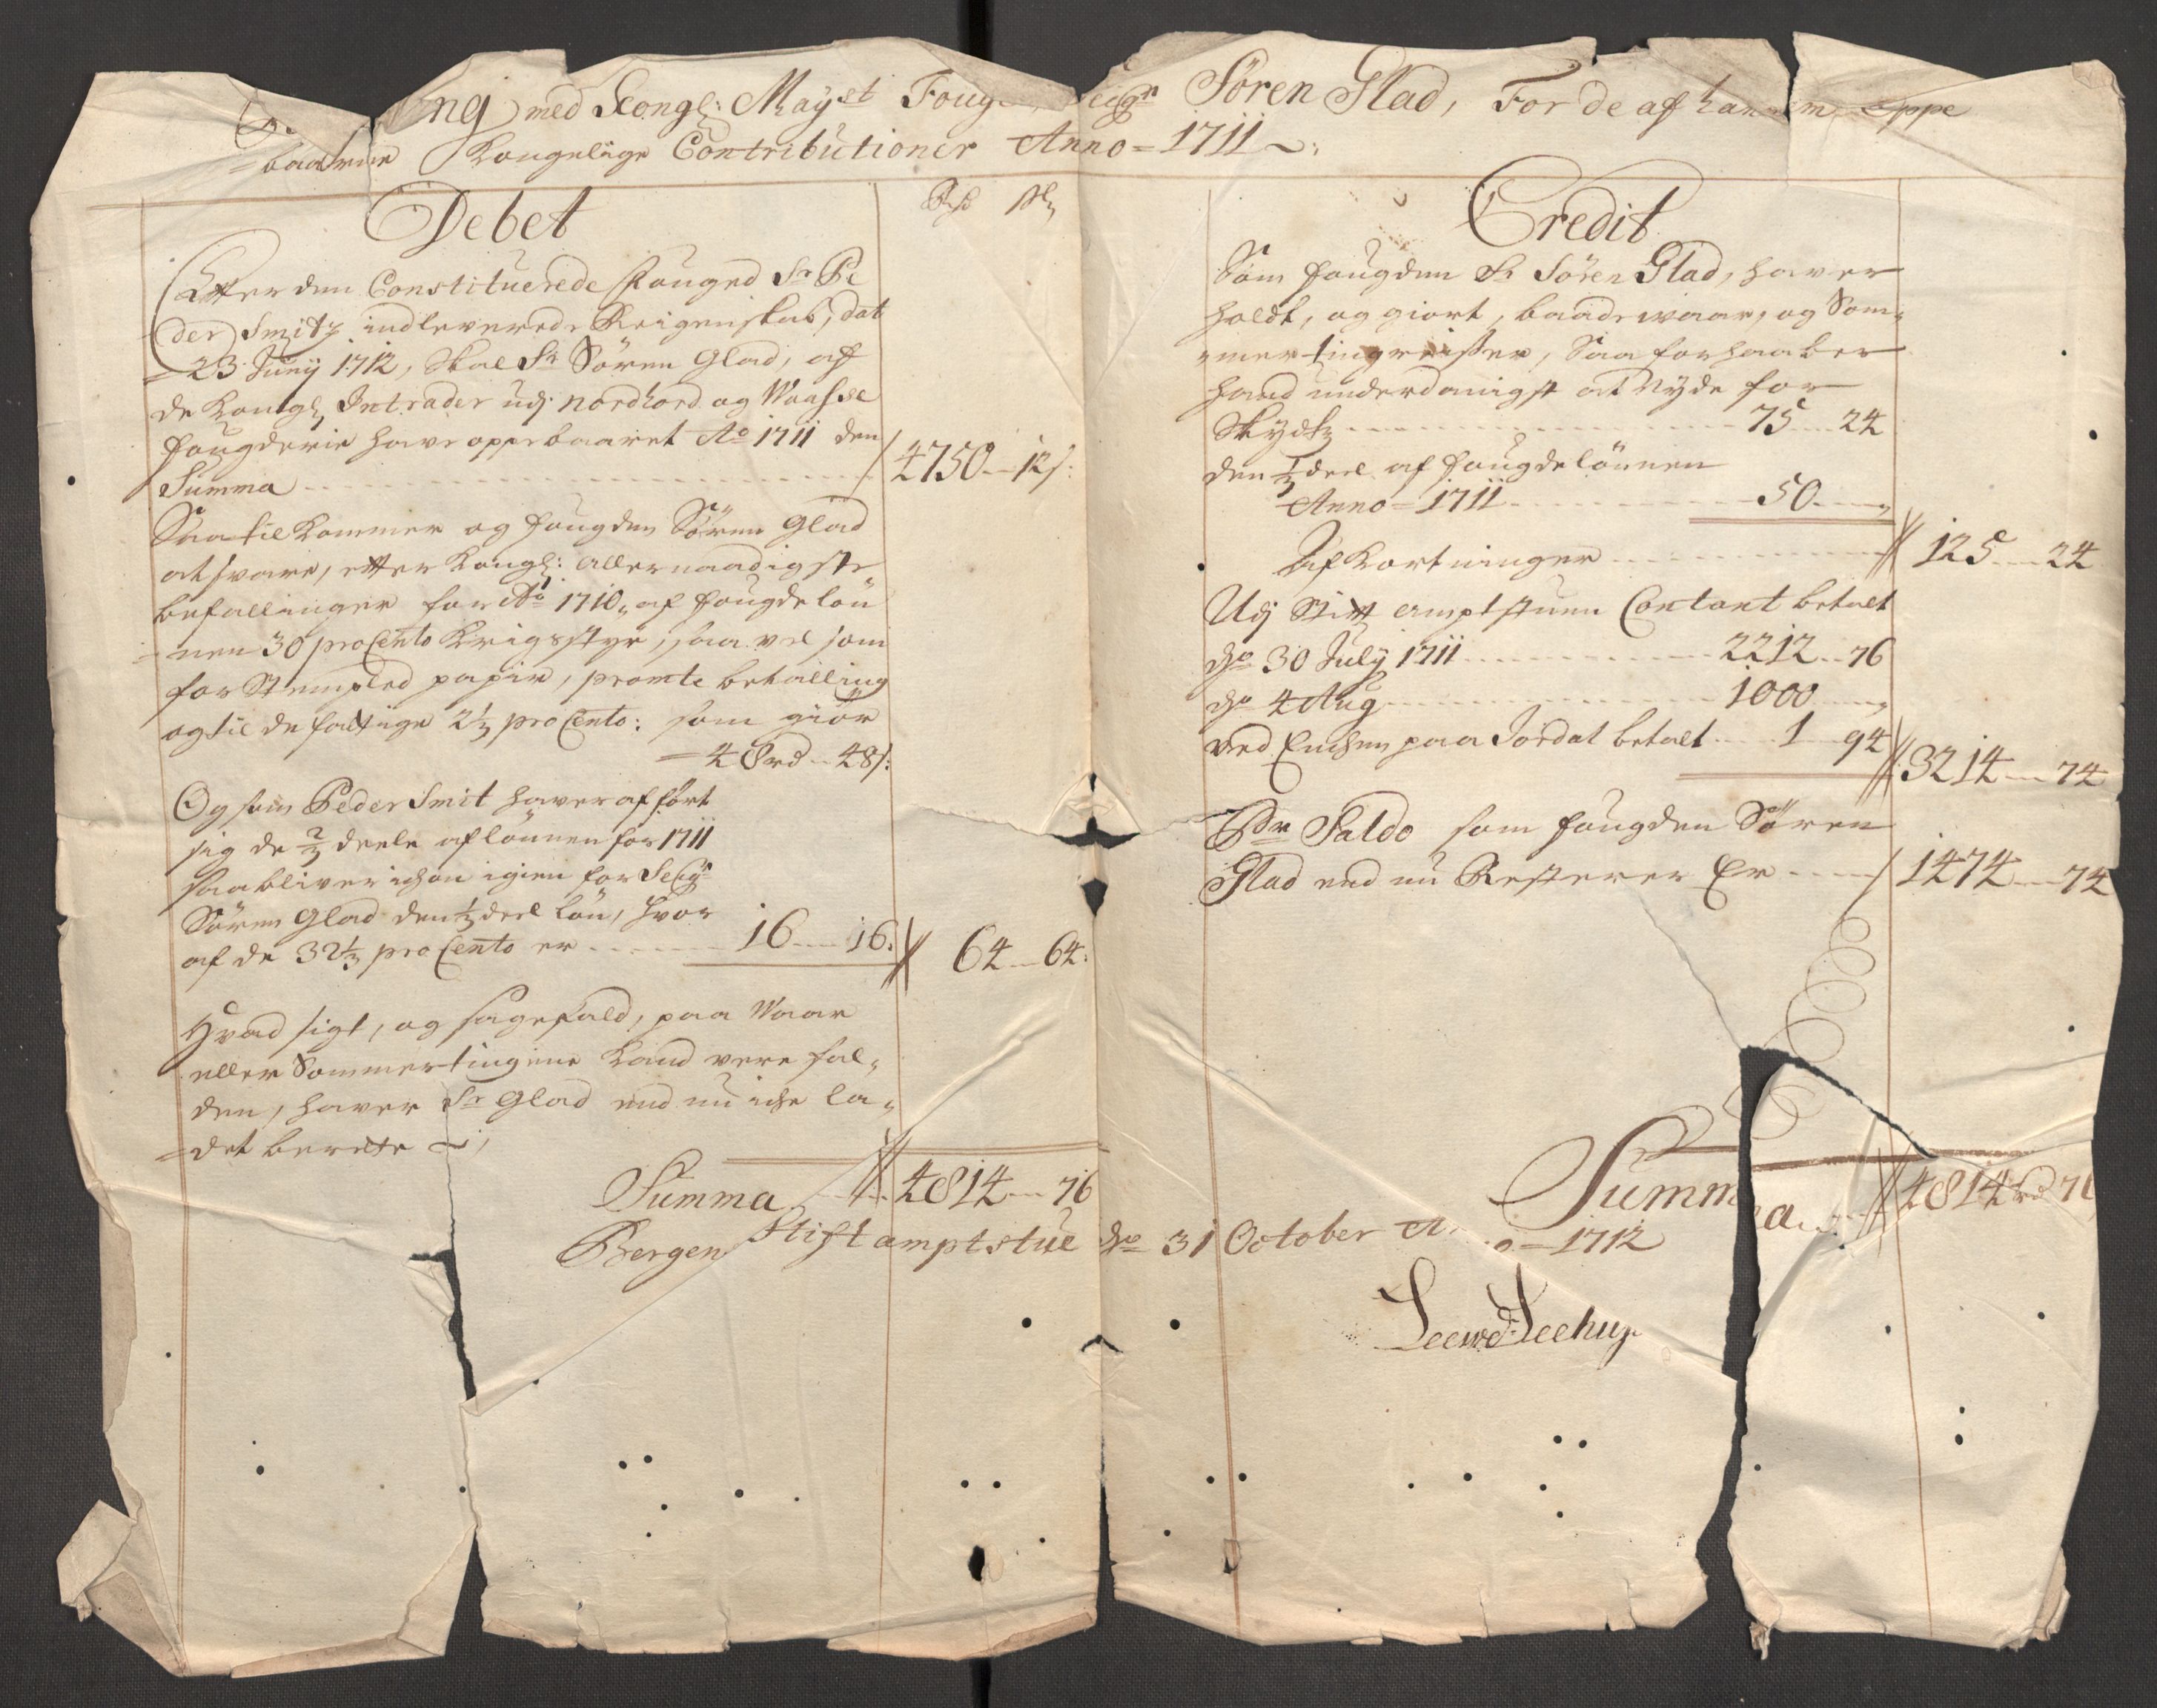 ng med Kongl: Mayst Foug Seigr Søren Glad, For de af hannem oppe
=baarne Kongelige Contributioner Anno=1711
Debet
Rd
Efter den Constituerede Fouged Sr Pe
der Smitz indleverede Reigenskab, dat
=23 Juny 1712, Skal Sr Søren Glad, af
de Kongl Intrader udj Nordhord og Waasse
fougderie have oppebaaret Ao 1711 den
Summa 4750 12 s:
Saa tilkommer og fougden Søren Glad
at svare, efter Kongl: allernaadigste
befallinger for Ao 1710, af fougdeløn
=nen 30 pro Cento Krigsstyr, saa vel som
for Stempled papir, promte betalling
og til de fattige 2 1/3 pro Cento: som giör
=48 rd 48 s:
Og som Peder Smit haver afført
sig de 2/3 deele af lønnen for 1711
saa bliver ichon igien for Seig
Søren Glad den 1/3 deel løn, hvor
af de 32 1/3 pro Cento er 16 16. 64 64:
Hvad sigt, og sagefald, paa Waar
eller Sommertingene kand vere fal,,
den, haver Sr Glad end nu iche la,,
=det berette
Summa 4814 76
Credit
Som fougden Sr Søren Glad, haver
holdt, og giort, baade waar, og Som,,
mertingreiser, Saa forhaaber
hand underdanigst at Nyde for
Skydtz 75 24
den 1/3 deel af fougdelønnen
Anno=1711 50
Afkortninger 125 24
Udj Stift amptstuen Contant betalt
do 30 July 1711 2212 76
do 4 Aug 1000
ved paa Jordal betalt 1 94 3214 74
Pr Saldo som fougden Søren
Glad end nu Resterer Er 1474 74
Summa 4814 rd 76
Bergens Stiftamptstue do 31 October A o=1712